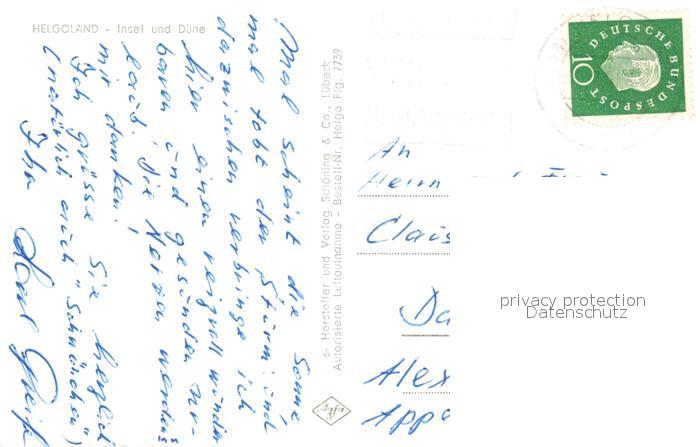 HELGOLAND - Insel und Düne
Mal scheint die Sonne,
mal tobt der Sturm: und
dazwischen verbringe ich
hier einen
baren und gesunden Ur-
laub. Die Nerven werdens
mir danken!
Ich grüsse Sie herzlich
(natürlich auch "Schnäuzchen")
Ihr
s- Hersteller und Verlag Schöning & Co., Lübeck
Autorisierte Luftaufnahme - Bestell-Nr. Helgo Flg. 7739
DEUTSCHE BUNDESPOST
10
An
Herrn
Claus
Da
Alex
Appe
privacy protection
Datenschutz